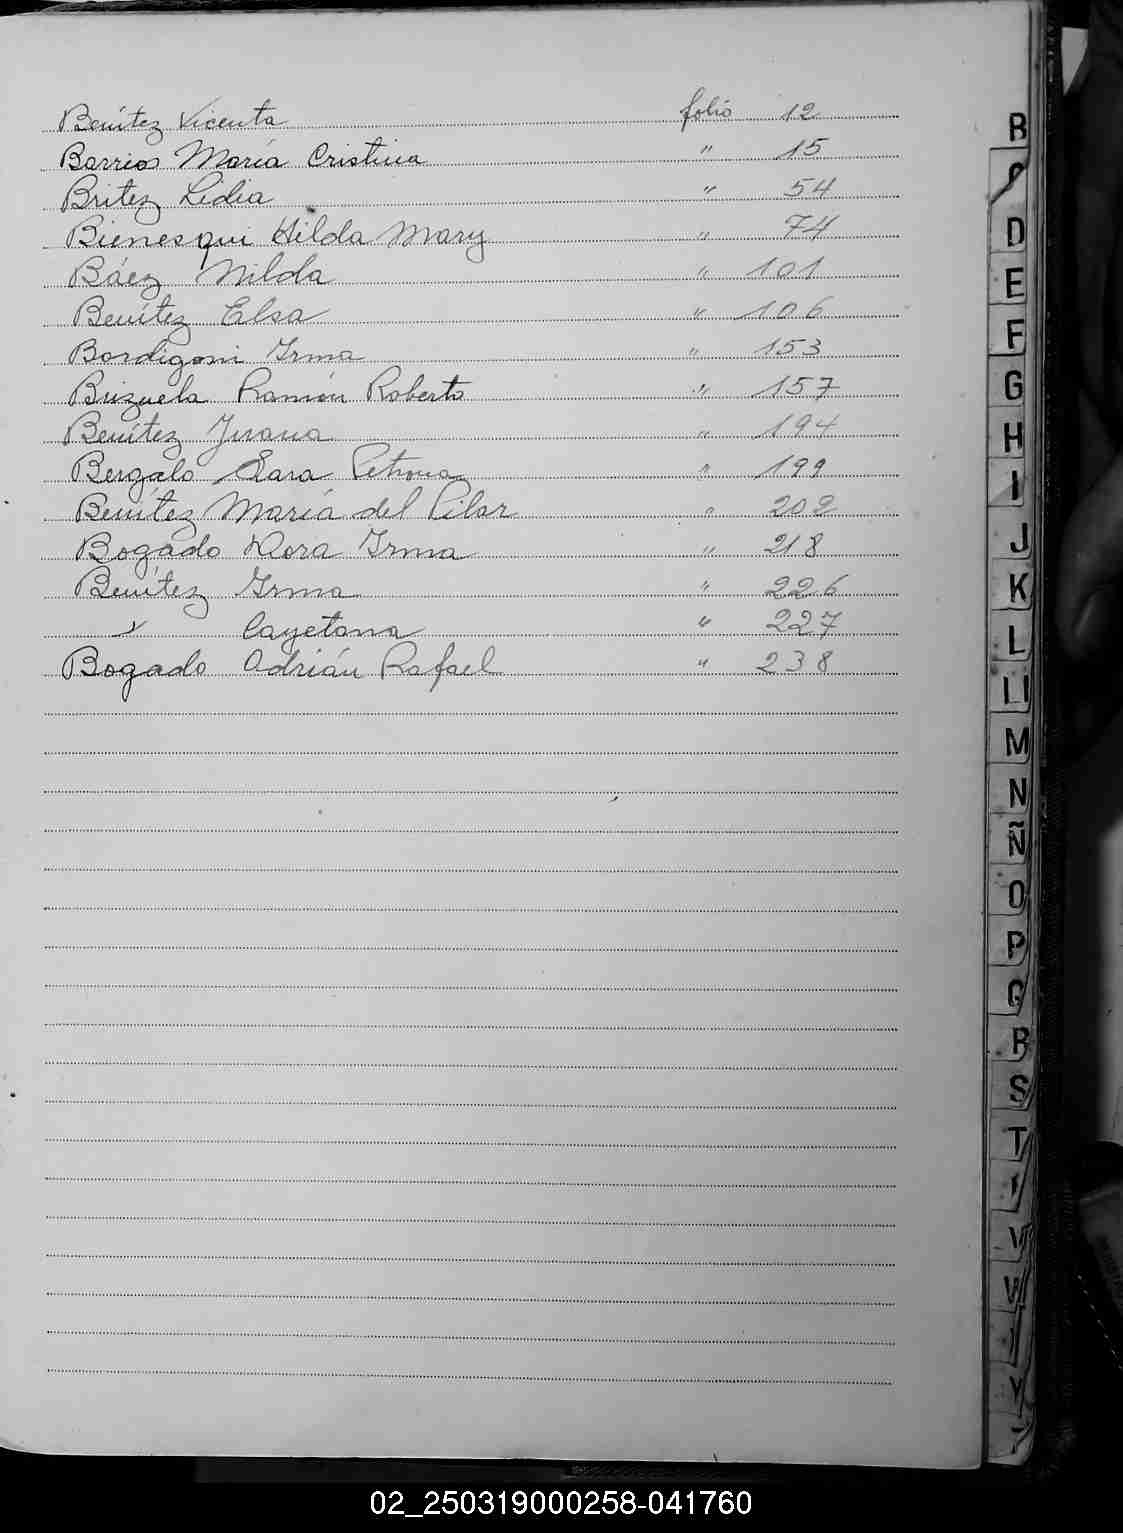 Benítez Vicenta folio 12
Barrios María Cristina " 15
Britez Lidia " 54
Bienesqui Hilda Mary " 74
Báez Nilda " 101
Benítez Elsa " 106
Bordigoni Irma " 153
Brizuela Ramón Roberto " 157
Benítez Juana " 194
Bergalo Sara Petrona " 199
Benítez María del Pilar " 202
Bogado Dora Irma " 218
Benítez Irma " 226
" Cayetana " 227
Bogado Adrián Rafael " 238
B
D
E
F
G
H
I
J
K
L
Ll
M
N
Ñ
O
P
Q
R
S
T
V
W
Y
02_250319000258-041760